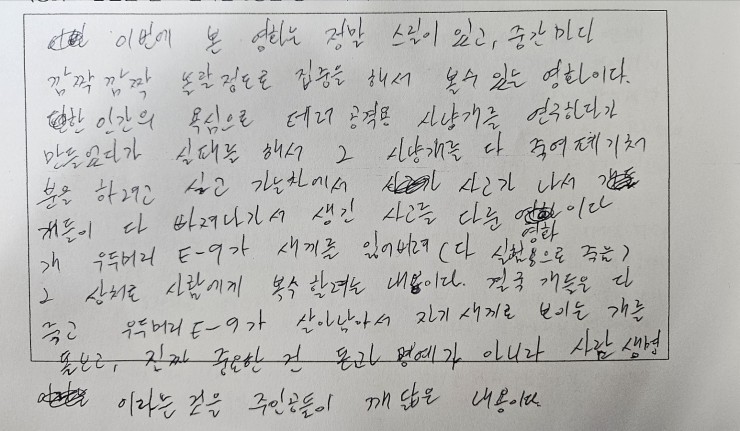 이번에 본 영화는 정말 스릴이 있고, 중간마다
깜짝 깜짝 놀랄 정도로 집중을 해서 볼수 있는 영화이다.
인간의 욕심으로 테러 공격용 사냥개를 연구한다가
만들었다가 실패를 해서 그 사냥개를 다 죽여 폐기처
분을 하려고 싣고 가는차에서 사고가 나서
개들이 다 빠져나가서 생긴 사고를 다룬 영화이다
개 우두머리 E-9가 새끼를 잃어버려 (다 실험용으로 죽음)
그 상처로 사람에게 복수 할려는 내용이다. 결국 개들은 다
죽고 우두머리 E-9가 살아남아서 자기 새끼로 보이는 개를
돌보고, 진짜 중요한 건 돈과 명예가 아니라 사람 생명
이라는 것을 주인공들이 깨닮은 내용이다.